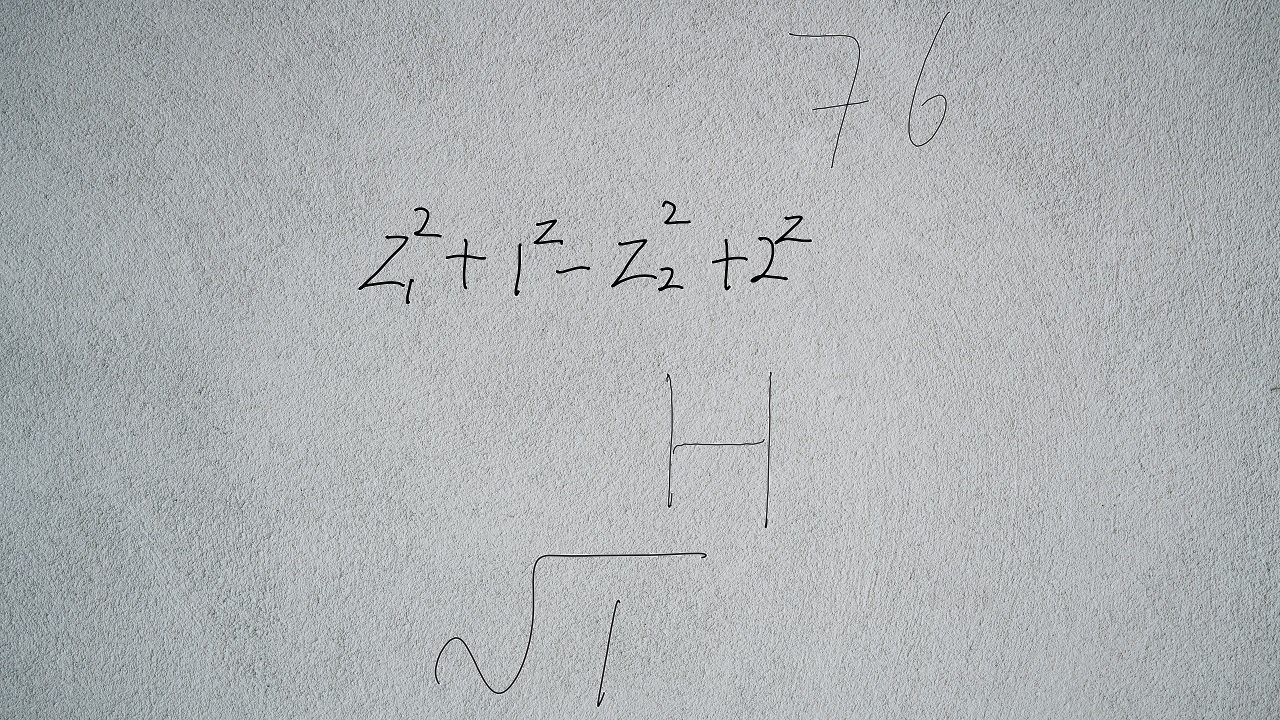 76
z₁² + 1² - z₂² + 2²
H
√1